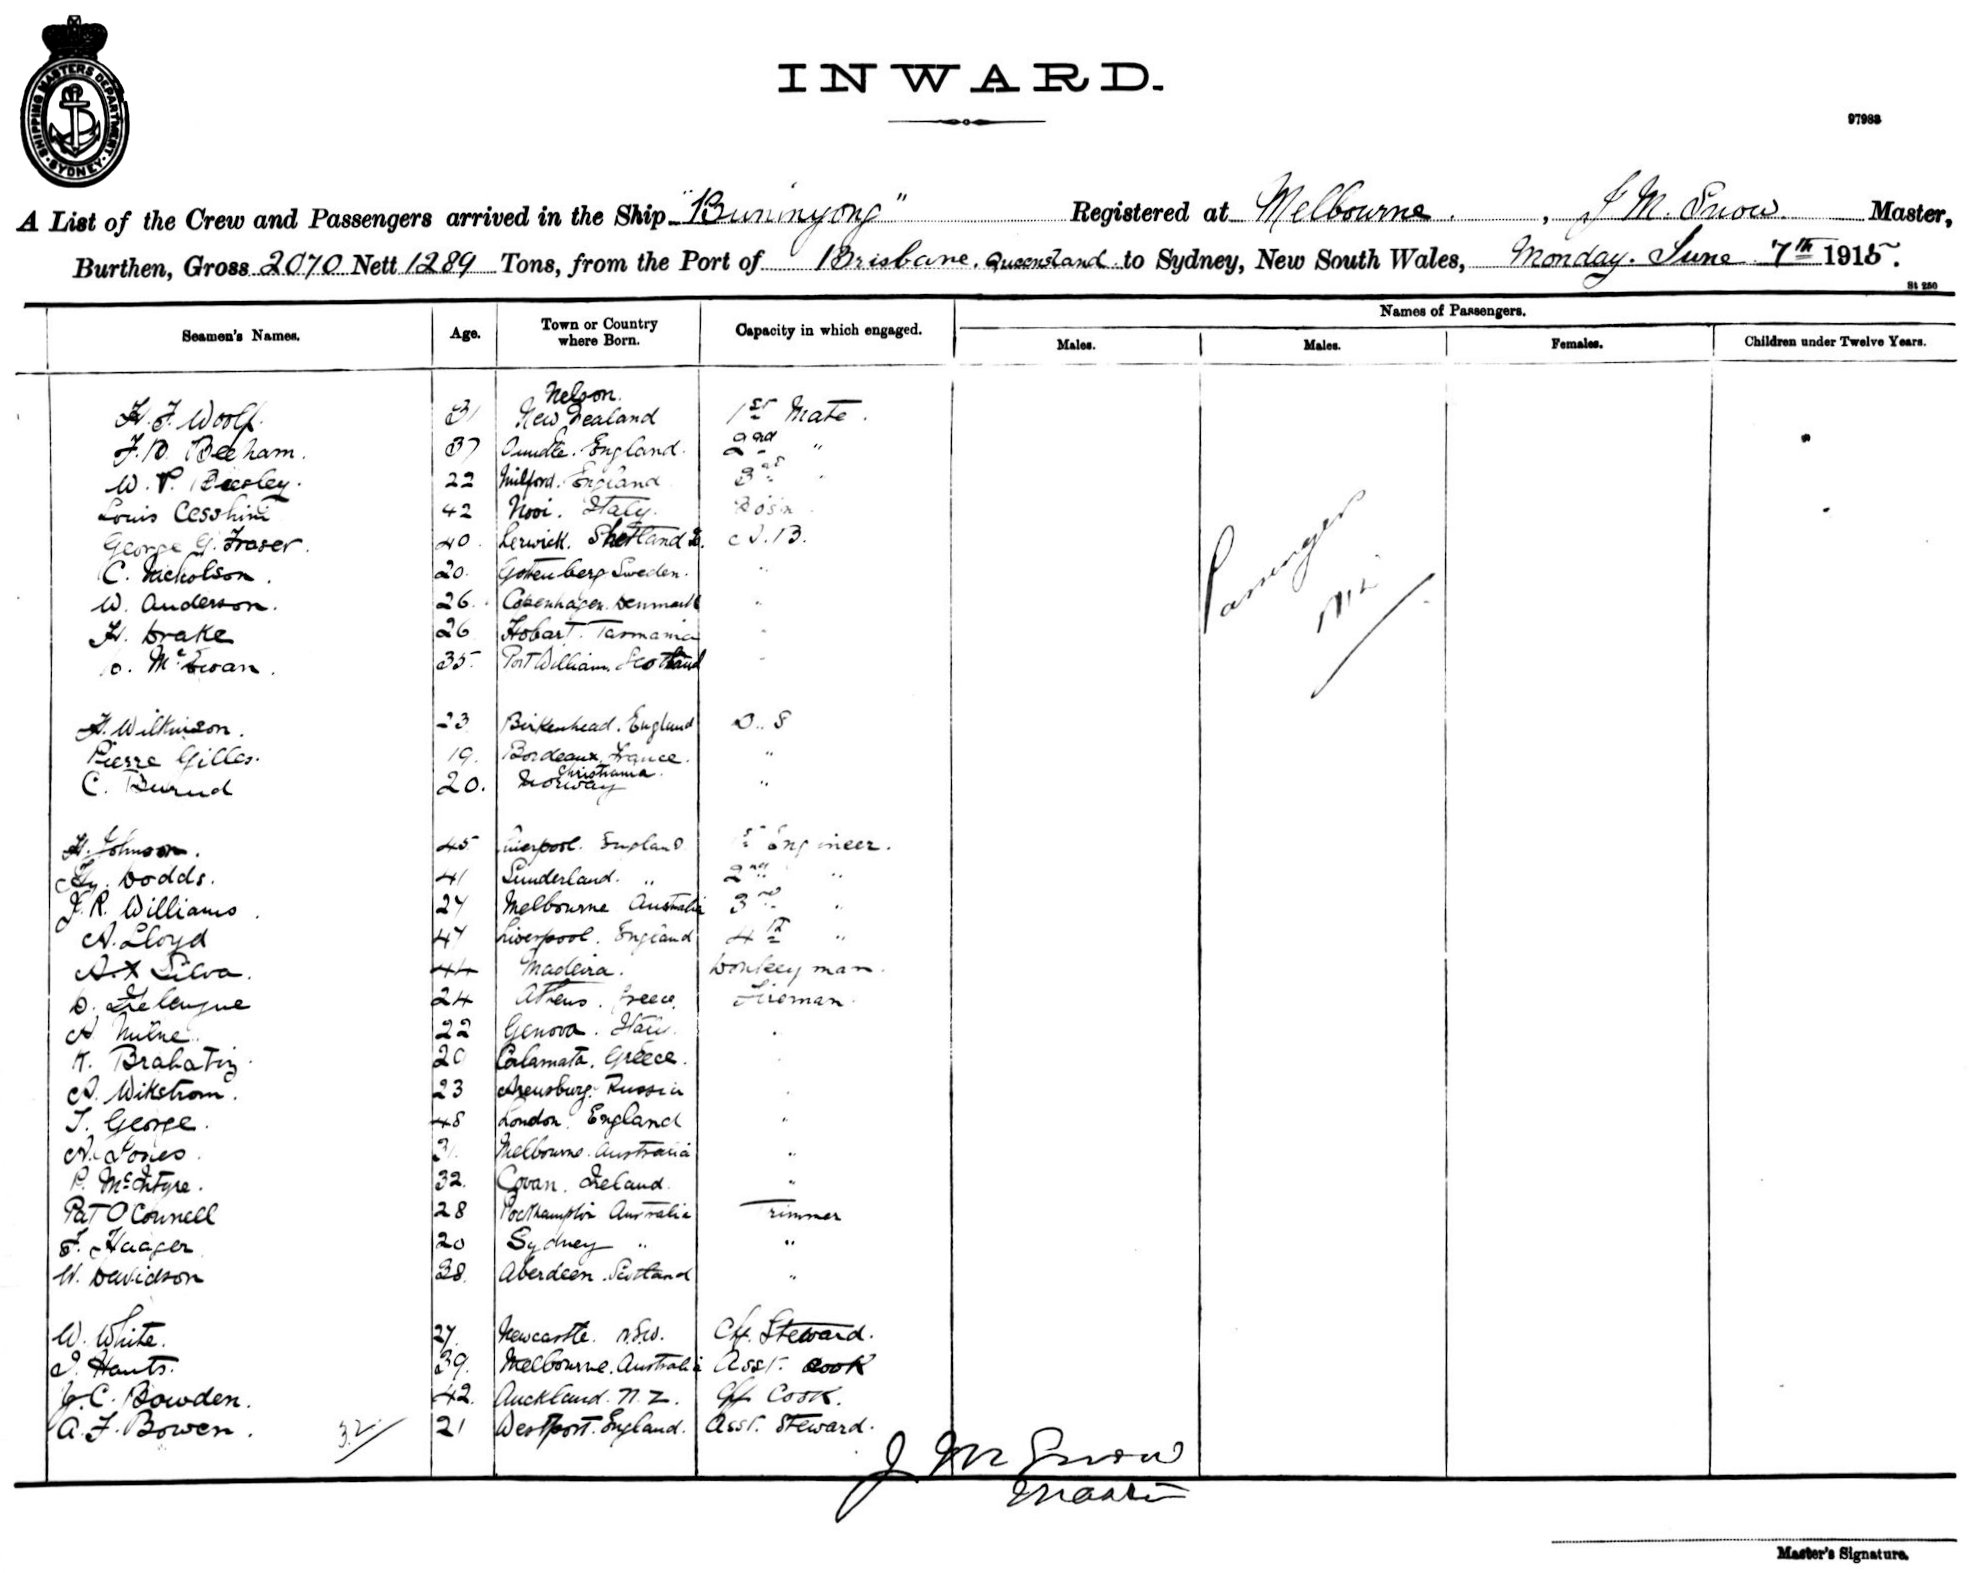 SHIPPING MASTERS DEPARTMENT
SYDNEY
INWARD.
97983
A List of the Crew and Passengers arrived in the Ship "Buninyong" Registered at Melbourne. , J M. Snow Master,
Burthen, Gross 2070 Nett 1289 Tons, from the Port of Brisbane, Queensland to Sydney, New South Wales, Monday. June 7th 1915.
St 250
Seamen's Names. Age. Town or Country where Born. Capacity in which engaged. Names of Passengers.
Males. Males. Females. Children under Twelve Years.
Nelson.
H. F. Woolf. 31 New Zealand 1st Mate.
F. D. Beeham. 37 Oundle. England. 2nd "
W. P. Beesley. 22 Milford. England 3rd "
Louis Cesshini 42 Italy. Bosn
George G. Fraser. 40. Lerwick. Shetland I. A.B.
C. Nicholson. 20. Gotenberg Sweden. "
W. Anderson. 26. Copenhagen. Denmark "
H. Drake 26 Hobart. Tasmania "
McEwan. 35 Port William. Scotland "
Passenger
Nil
H. Wilkinson. 23 Birkenhead. England O.S
Pierre Gilles. 19. Bordeaux France. "
Christiania.
C. Burud 20. Norway "
H. Johnson. 45 Liverpool. England 1st Engineer.
Hy. Dodds. 41 Sunderland. " 2nd "
J. R. Williams. 27 Melbourne Australia 3rd "
A. Lloyd 47 Liverpool. England 4th "
A. X Silva. 44 Madeira. Donkeyman.
D. 24 Athens. Greece. Fireman.
A Milne. 22 Genova. Italy. "
K. Brahatiz. 20 Calamata. Greece. "
A. Wikstrom. 23 Arensburg. Russia "
T. George. 48 London. England "
A. Jones. 31. Melbourne. Australia "
P. McIntyre. 32. Ireland. "
Pat O Connell 28 Rockhampton Australia Trimmer
F. Haager 20 Sydney " "
W. Davidson 38. Aberdeen. Scotland "
W. White. 27. Newcastle. N.S.W. Chf. Steward.
J. Hants. 39. Melbourne. Australia Asst. Cook
J. C. Bowden. 42. Auckland. N.Z. Chf Cook.
A. F. Bowen. 32/ 21 Westport. England. Asst. Steward.
J M Snow
Master
Master's Signature.